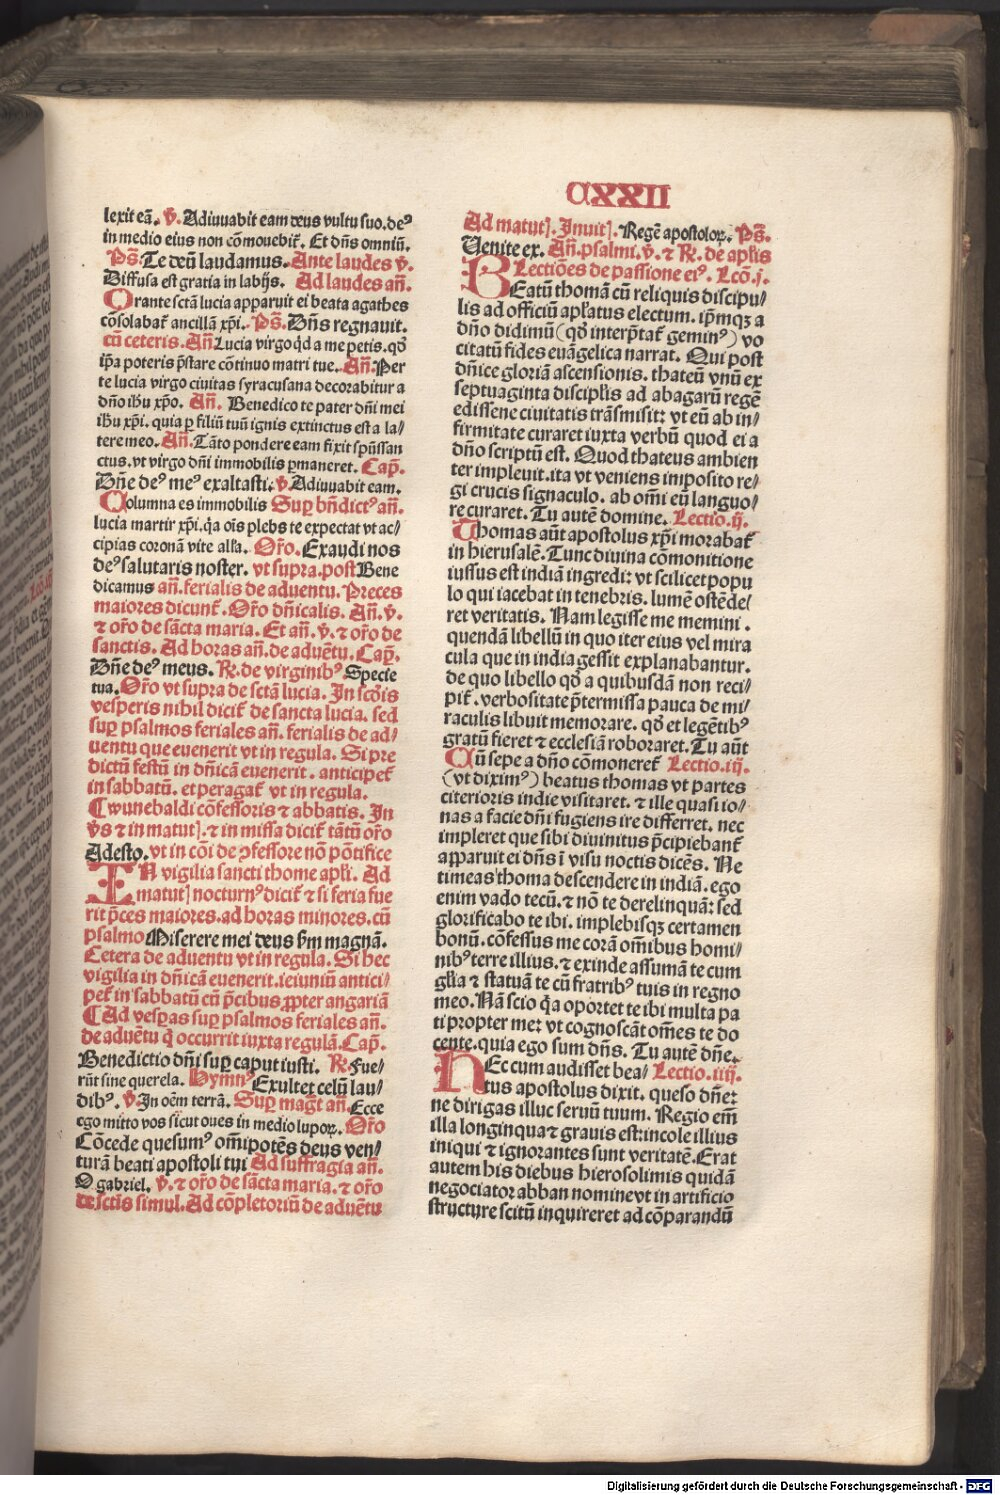 CXXII
lexit eã. v̄. Adiuuabit eam deus vultu suo. deꝰ
in medio eius non cõmouebit̃. Et dñs omniũ.
Ps̃. Te deũ laudamus. Ante laudes v̄.
Diffusa est gratia in labijs. Ad laudes añ.
Orante sctãm lucia apparuit ei beata agathes
cõsolabat̃ ancillã xp̃i. Ps̃. Dñs regnauit.
cũ ceteris. Añ Lucia virgo qd a me petis. qđ
ip̃a poteris p̃stare cõtinuo matri tue. Añ. Per
te lucia virgo ciuitas syracusana decorabitur a
dño ihũ xp̃o. Añ. Benedico te pater dñi mei
ihũ xp̃i. quia ꝑ filiũ tuũ ignis extinctus est a la⸗
tere meo. Añ. Tãto pondere eam fixit sp̃ũssan
ctus. vt virgo dñi immobilis ꝑmaneret. Cap̃.
Dñe deꝰ meꝰ exaltasti. v̄ Adiuuabit eam.
Columna es immobilis Suꝑ bñdictꝰ añ.
lucia martir xp̃i. qã oĩs plebs te expectat vt ac⸗
cipias coronã vite alľa. Orõ. Exaudi nos
deꝰ salutaris noster. vt supra. post Bene
dicamus añ. ferialis de aduentu. Preces
maiores dicunt̃. Orõ dñicalis. Añ. v̄.
⁊ orõ de sãcta maria. Et añ. v̄. ⁊ orõ de
sanctis. Ad horas añ. de aduẽtu. Cap̃.
Dñe deꝰ meus. R̃. de virginibꝰ Specie
tua. Orõ vt supra de sctã lucia. In scđis
vesperis nihil dicit̃ de sancta lucia. sed
suꝑ psalmos feriales añ. ferialis de ad⸗
uentu que euenerit vt in regula. Si pre
dictũ festũ in dñicã euenerit. anticipet̃
in sabbatũ. et peragat̃ vt in regula.
¶ wunebaldi cõfessoris ⁊ abbatis. In
v̄s ⁊ in matutꝭ. ⁊ in missa dicit̃ tãtũ orõ
Adesto. vt in cõi de ↄfessore nõ põtifice
IN vigilia sancti thome apľi. Ad
matutꝭ nocturnꝰ dicit̃ ⁊ si feria fue
rit p̃ces maiores. ad horas minores. cũ
psalmo Miserere mei deus s̃m magnã.
Cetera de aduentu vt in regula. Si hec
vigilia in dñicã euenerit. ieiuniũ antici⸗
pet̃ in sabbatũ cũ p̃cibus ꝓpter angariã
¶ Ad vesꝑas suꝑ psalmos feriales añ.
de aduẽtu q̃ occurrit iuxta regulã. Cap̃.
Benedictio dñi suꝑ caput iusti. R̃. Fue⸗
rũt sine querela. Hymnꝰ Exultet celũ lau⸗
dibꝰ. v̄. In oẽm terrã. Suꝑ mag̃t añ. Ecce
ego mitto vos sicut oues in medio lupoꝝ. Orõ
Cõcede quesumꝰ om̃ipotẽs deus ven⸗
turã beati apostoli tui Ad suffragia añ.
O gabriel. v̄. ⁊ orõ de sãcta maria. ⁊ orõ
de sctis simul. Ad cõpletoriũ de aduẽtu
Ad matutꝭ. Inuitꝭ. Regẽ apostoloꝝ. Ps̃.
Venite ex. Añ. psalmi. v̄. ⁊ R̃. de apľis
Lectiões de passione eiꝰ. Lcõ. j.
BEatũ thomam cũ reliquis discipu⸗
lis ad officiũ apľatus electum. ip̃mqꝫ a
dño didimũ (qđ interp̃tat̃ geminꝰ) vo
citatũ fides euãgelica narrat. Qui post
dñice gloriã ascensionis. thateũ vnũ ex
septuaginta disciplis ad abagarũ regẽ
edissene ciuitatis trãsmisit: vt eũ ab in⸗
firmitate curaret iuxta verbũ quod ei a
dño scriptũ est. Quod thateus ambien
ter impleuit. ita vt veniens imposito re⸗
gi crucis signaculo. ab om̃i eũ languo⸗
re curaret. Tu autẽ domine. Lectio. ij.
Thomas aũt apostolus xp̃i morabat̃
in hierusalẽ. Tunc diuina cõmonitione
iussus est indiã ingredi: vt scilicet popu
lo qui iacebat in tenebris. lumẽ ostẽde⸗
ret veritatis. Nam legisse me memini.
quendã libellũ in quo iter eius vel mira
cula que in india gessit explanabantur.
de quo libello qđ a quibusdã non reci⸗
pit̃. verbositate p̃termissa pauca de mi⸗
raculis libuit memorare. qđ et legẽtibꝰ
gratũ fieret ⁊ ecclesiã roboraret. Tu aũt
CŨ sepe a dño cõmoneret̃ Lectio. iij.
(vt diximꝰ) beatus thomas vt partes
citerioris indie visitaret. ⁊ ille quasi io⸗
nas a facie dñi fugiens ire differret. nec
impleret que sibi diuinitus p̃cipiebant̃
apparuit ei dñs ĩ visu noctis dicẽs. Ne
timeas thoma descendere in indiã. ego
enim vado tecũ. ⁊ nõ te derelinquã: sed
glorificabo te ibi. implebisqꝫ certamen
bonũ. cõfessus me corã om̃ibus homi⸗
nibꝰ terre illius. ⁊ exinde assumã te cum
glľia ⁊ statuã te cũ fratribꝰ tuis in regno
meo. Nã scio q̃a oportet te ibi multa pa
ti propter me: vt cognoscãt om̃es te do
cente. quia ego sum dñs. Tu autẽ dñe.
NEc cum audisset bea⸗ Lectio. iiij.
tus apostolus dixit. queso dñe:
ne dirigas illuc seruũ tuum. Regio em̃
illa longinqua ⁊ grauis est: incole illius
iniqui ⁊ ignorantes sunt veritatẽ. Erat
autem his diebus hierosolimis quidã
negociator abban nomine vt in artificio
structure scitũ inquireret ad cõparandũ
Digitalisierung gefördert durch die Deutsche Forschungsgemeinschaft - DFG